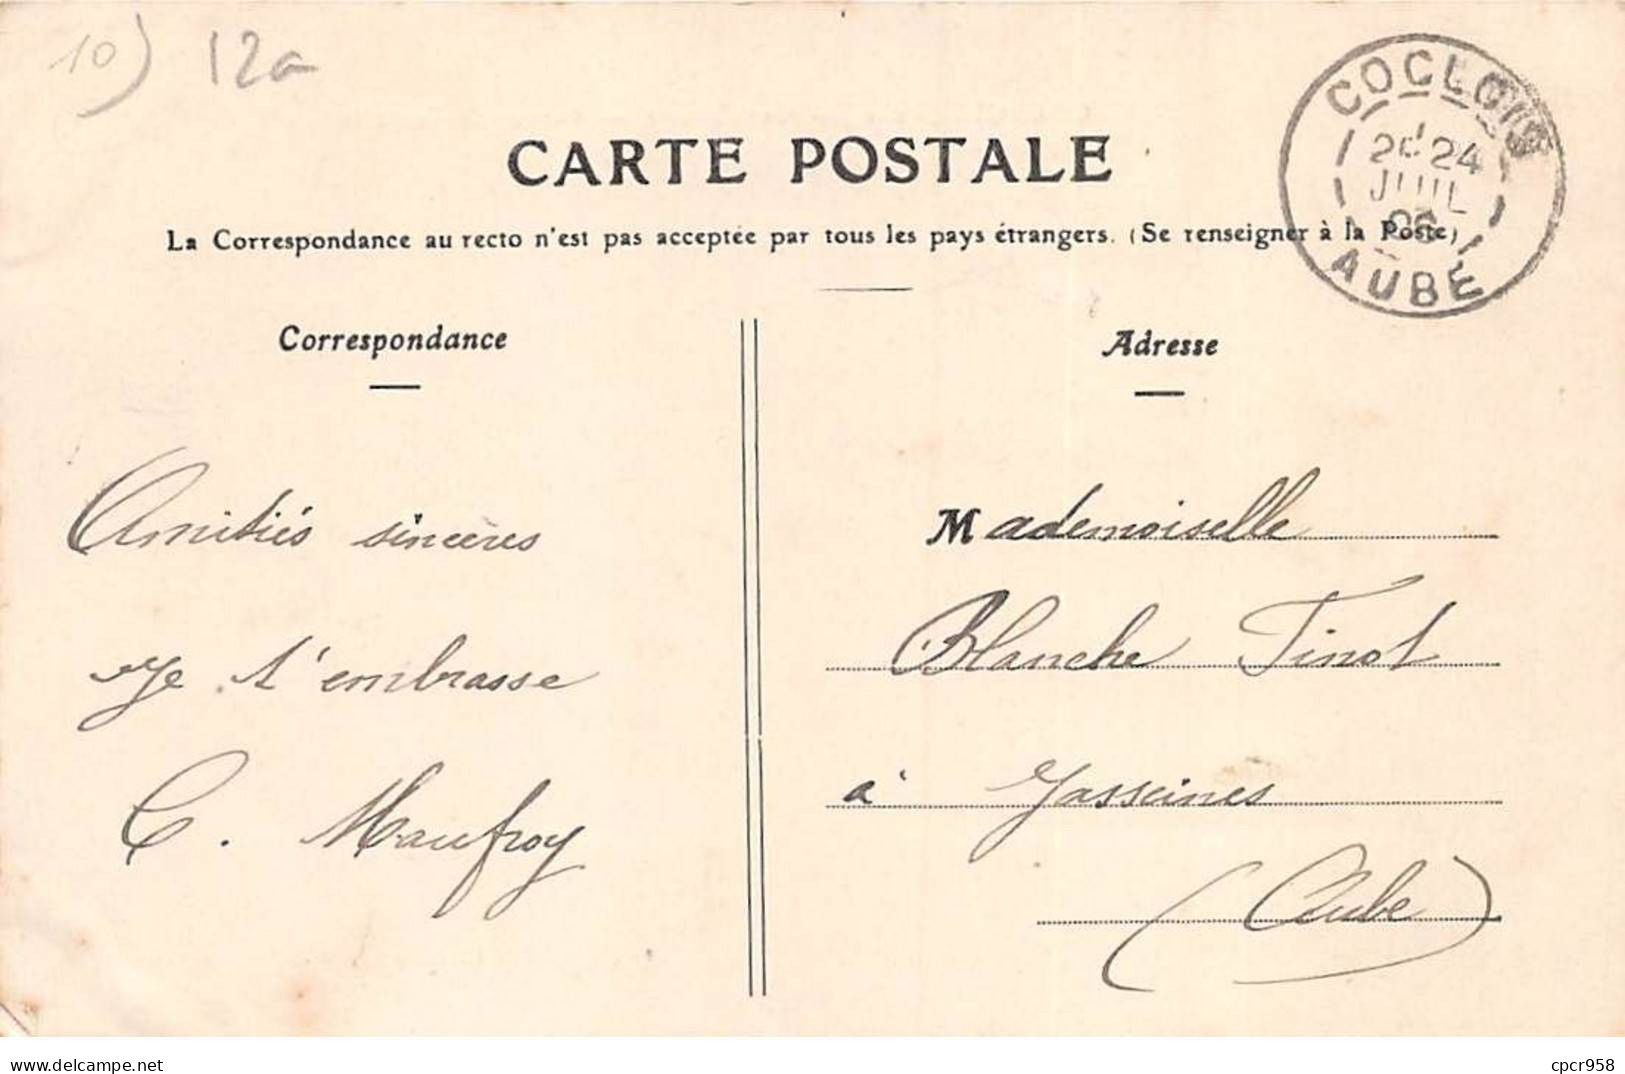 10) 12a
CARTE POSTALE
La Correspondance au recto n'est pas acceptée par tous les pays étrangers. (Se renseigner à la Poste)
COCLOIS
24
JUIL
AUBE
Correspondance
Amitiés sincères
Je t'embrasse
C. Maufroy
Adresse
Mademoiselle
Blanche Tinot
à Jasseines
(Aube)
delcampe.net
cpcr958